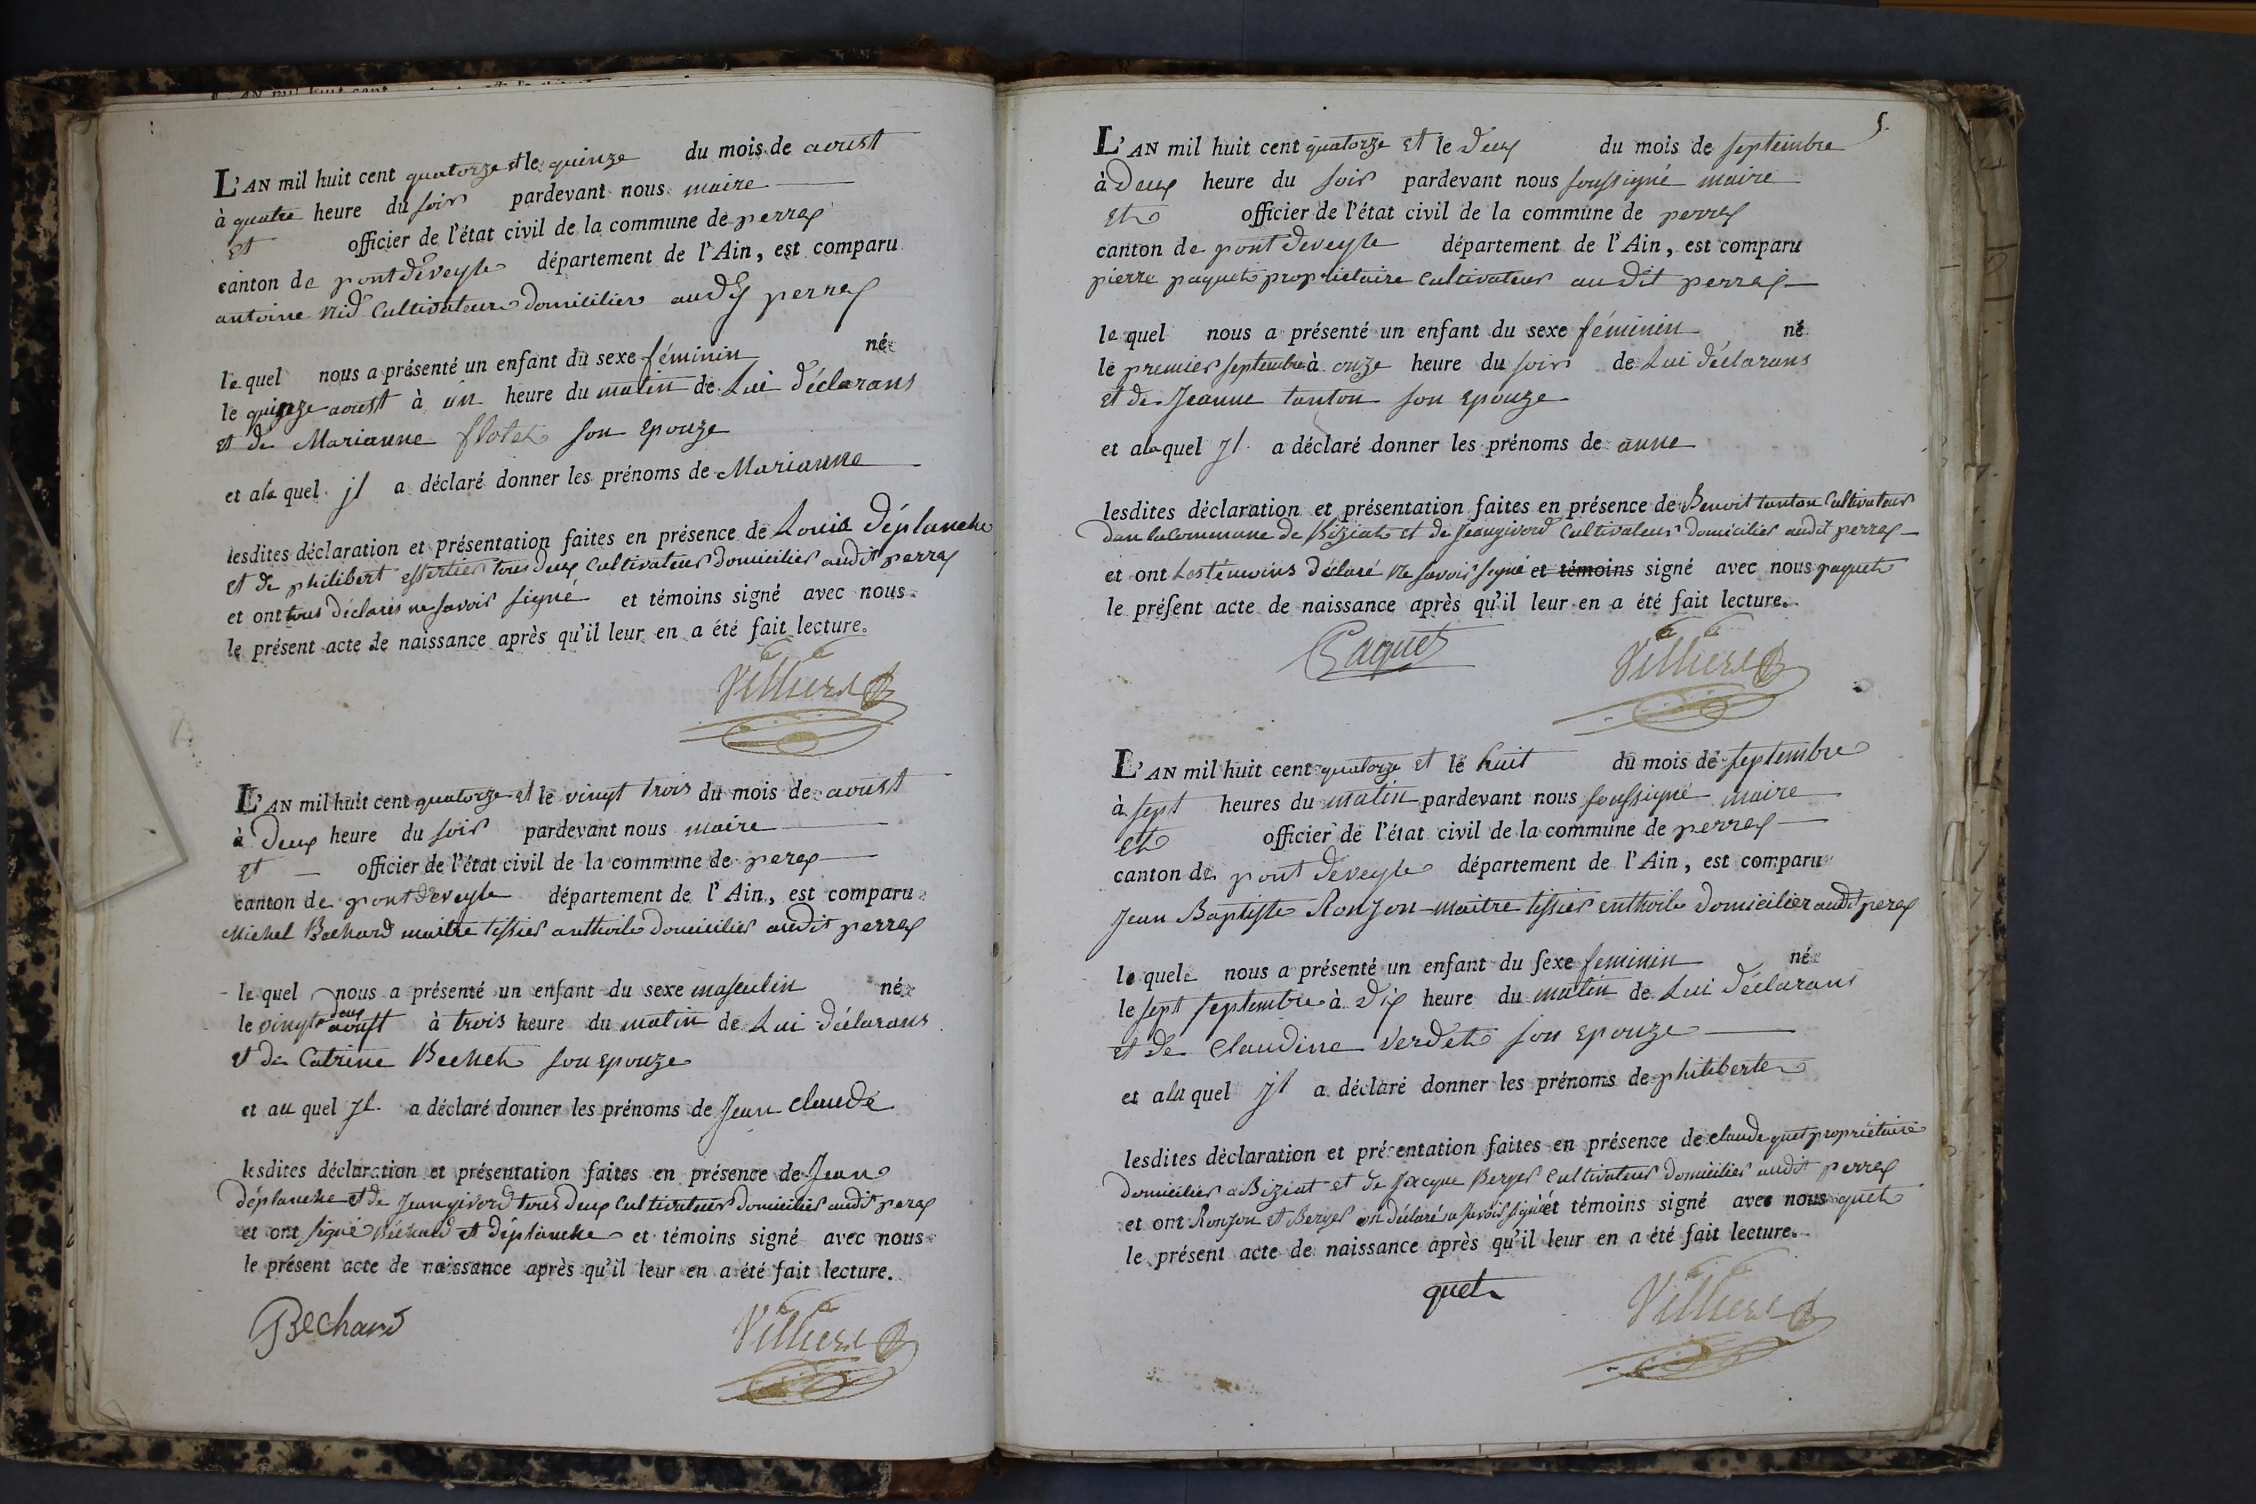 L'AN mil huit cent quatorze et le quinze du mois de aoust
à quatre heure du soir pardevant nous maire
et officier de l'état civil de la commune de perrex
canton de pontdeveyle département de l'Ain, est comparu
antoine nid Cultivateur domicilier audit perrex
le quel nous a présenté un enfant du sexe féminin né
le quinze aoust à un heure du matin de Lui déclarans
et de Marianne flotet son epouze
et ala quel jl a déclaré donner les prénoms de Marianne
lesdites déclaration et présentation faites en présence de Louis déplanche
et de philibert essertier tous deux Cultivateur domicilier audit perrex
et ont tous déclarés ne savoir signé et témoins signé avec nous
le présent acte de naissance après qu'il leur en a été fait lecture.
Villierd
L'AN mil huit cent quatorze et le vingt trois du mois de aoust
à deux heure du soir pardevant nous maire
et officier de l'état civil de la commune de perex
canton de pontdeveyle département de l'Ain, est comparu
Michel Bechard maitre tissier anthoile domicilier audit perrex
le quel nous a présenté un enfant du sexe masculin né
le vingt deux aoust à trois heure du matin de Lui déclarans
et de Catrine Bechet son epouze
et au quel jl a déclaré donner les prénoms de Jean claude
lesdites déclaration et présentation faites en présence de Jean
déplanche et de Jean givord tous deux Cultivateur domicilier audit perex
et ont signé Béchard et déplanche et témoins signé avec nous
le présent acte de naissance après qu'il leur en a été fait lecture.
Bechard Villierd
5.
L'AN mil huit cent quatorze et le deux du mois de septembre
à deux heure du soir pardevant nous soussigné maire
et officier de l'état civil de la commune de perrex
canton de pont deveyle département de l'Ain, est comparu
pierre paquet propriétaire Cultivateur au dit perrex
le quel nous a présenté un enfant du sexe féminin né
le premier septembre à onze heure du soir de Lui déclarans
et de Jeanne tanton son epouze
et ala quel jl a déclaré donner les prénoms de anne
lesdites déclaration et présentation faites en présence de Benoit tanton Cultivateur
dan la Commune de Biziat et de Jean givord Cultivateur domicilier audit perrex
et ont Les temoins déclaré ne savoir signé et témoins signé avec nous paquet
le présent acte de naissance après qu'il leur en a été fait lecture.
Paquet Villierd
L'AN mil huit cent quatorze et le huit du mois de septembre
à sept heures du matin pardevant nous soussigné maire
et officier de l'état civil de la commune de perrex
canton de pont deveyle département de l'Ain, est comparu
Jean Baptiste Ronjon maitre tissier enthoile domicilier audit perex
le quel nous a présenté un enfant du sexe feminin né
le sept septembre à dix heure du matin de Lui déclarans
et de Claudine Verdet son epouze
et ala quel jl a déclaré donner les prénoms de philiberte
lesdites déclaration et présentation faites en présence de claude quet proprietaire
domicilier a Biziat et de Jacque Berger Cultivateur domicilier audit perrex
et ont Ronjon et Berger on déclaré ne savoir signé et témoins signé avec nous quet
le présent acte de naissance après qu'il leur en a été fait lecture.
quet Villierd